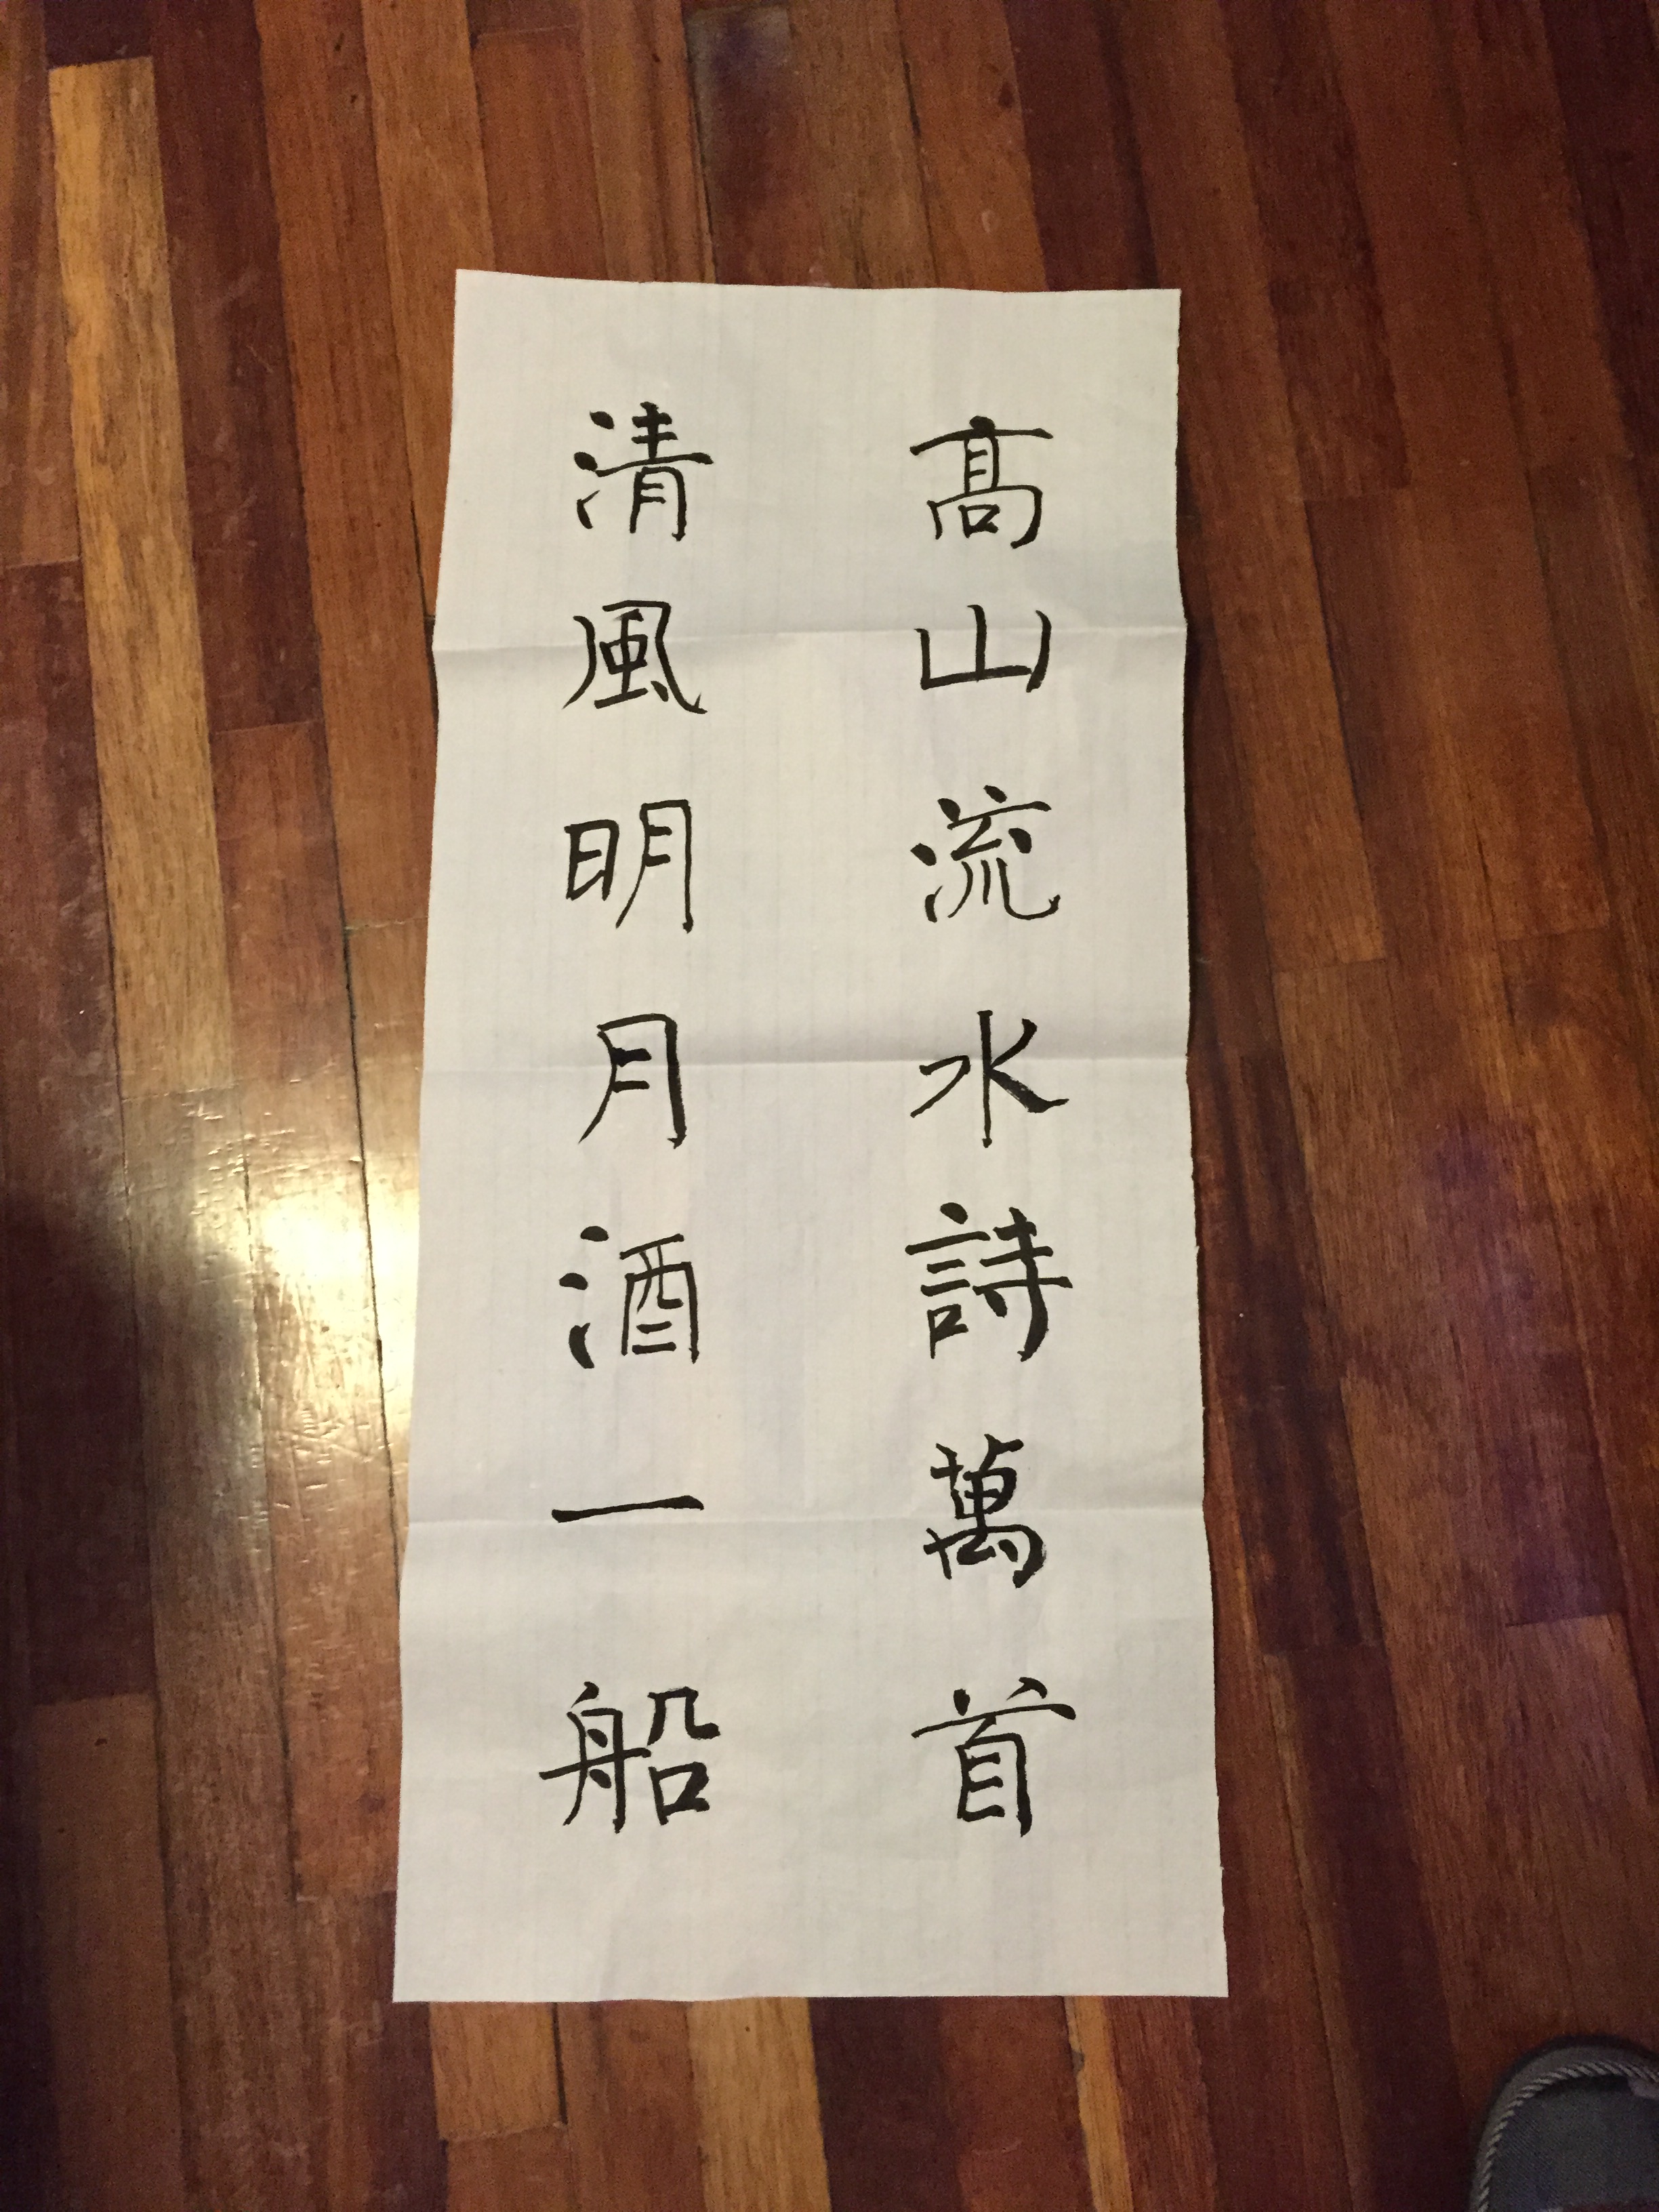 髙山流水詩萬首
清風明月酒一船